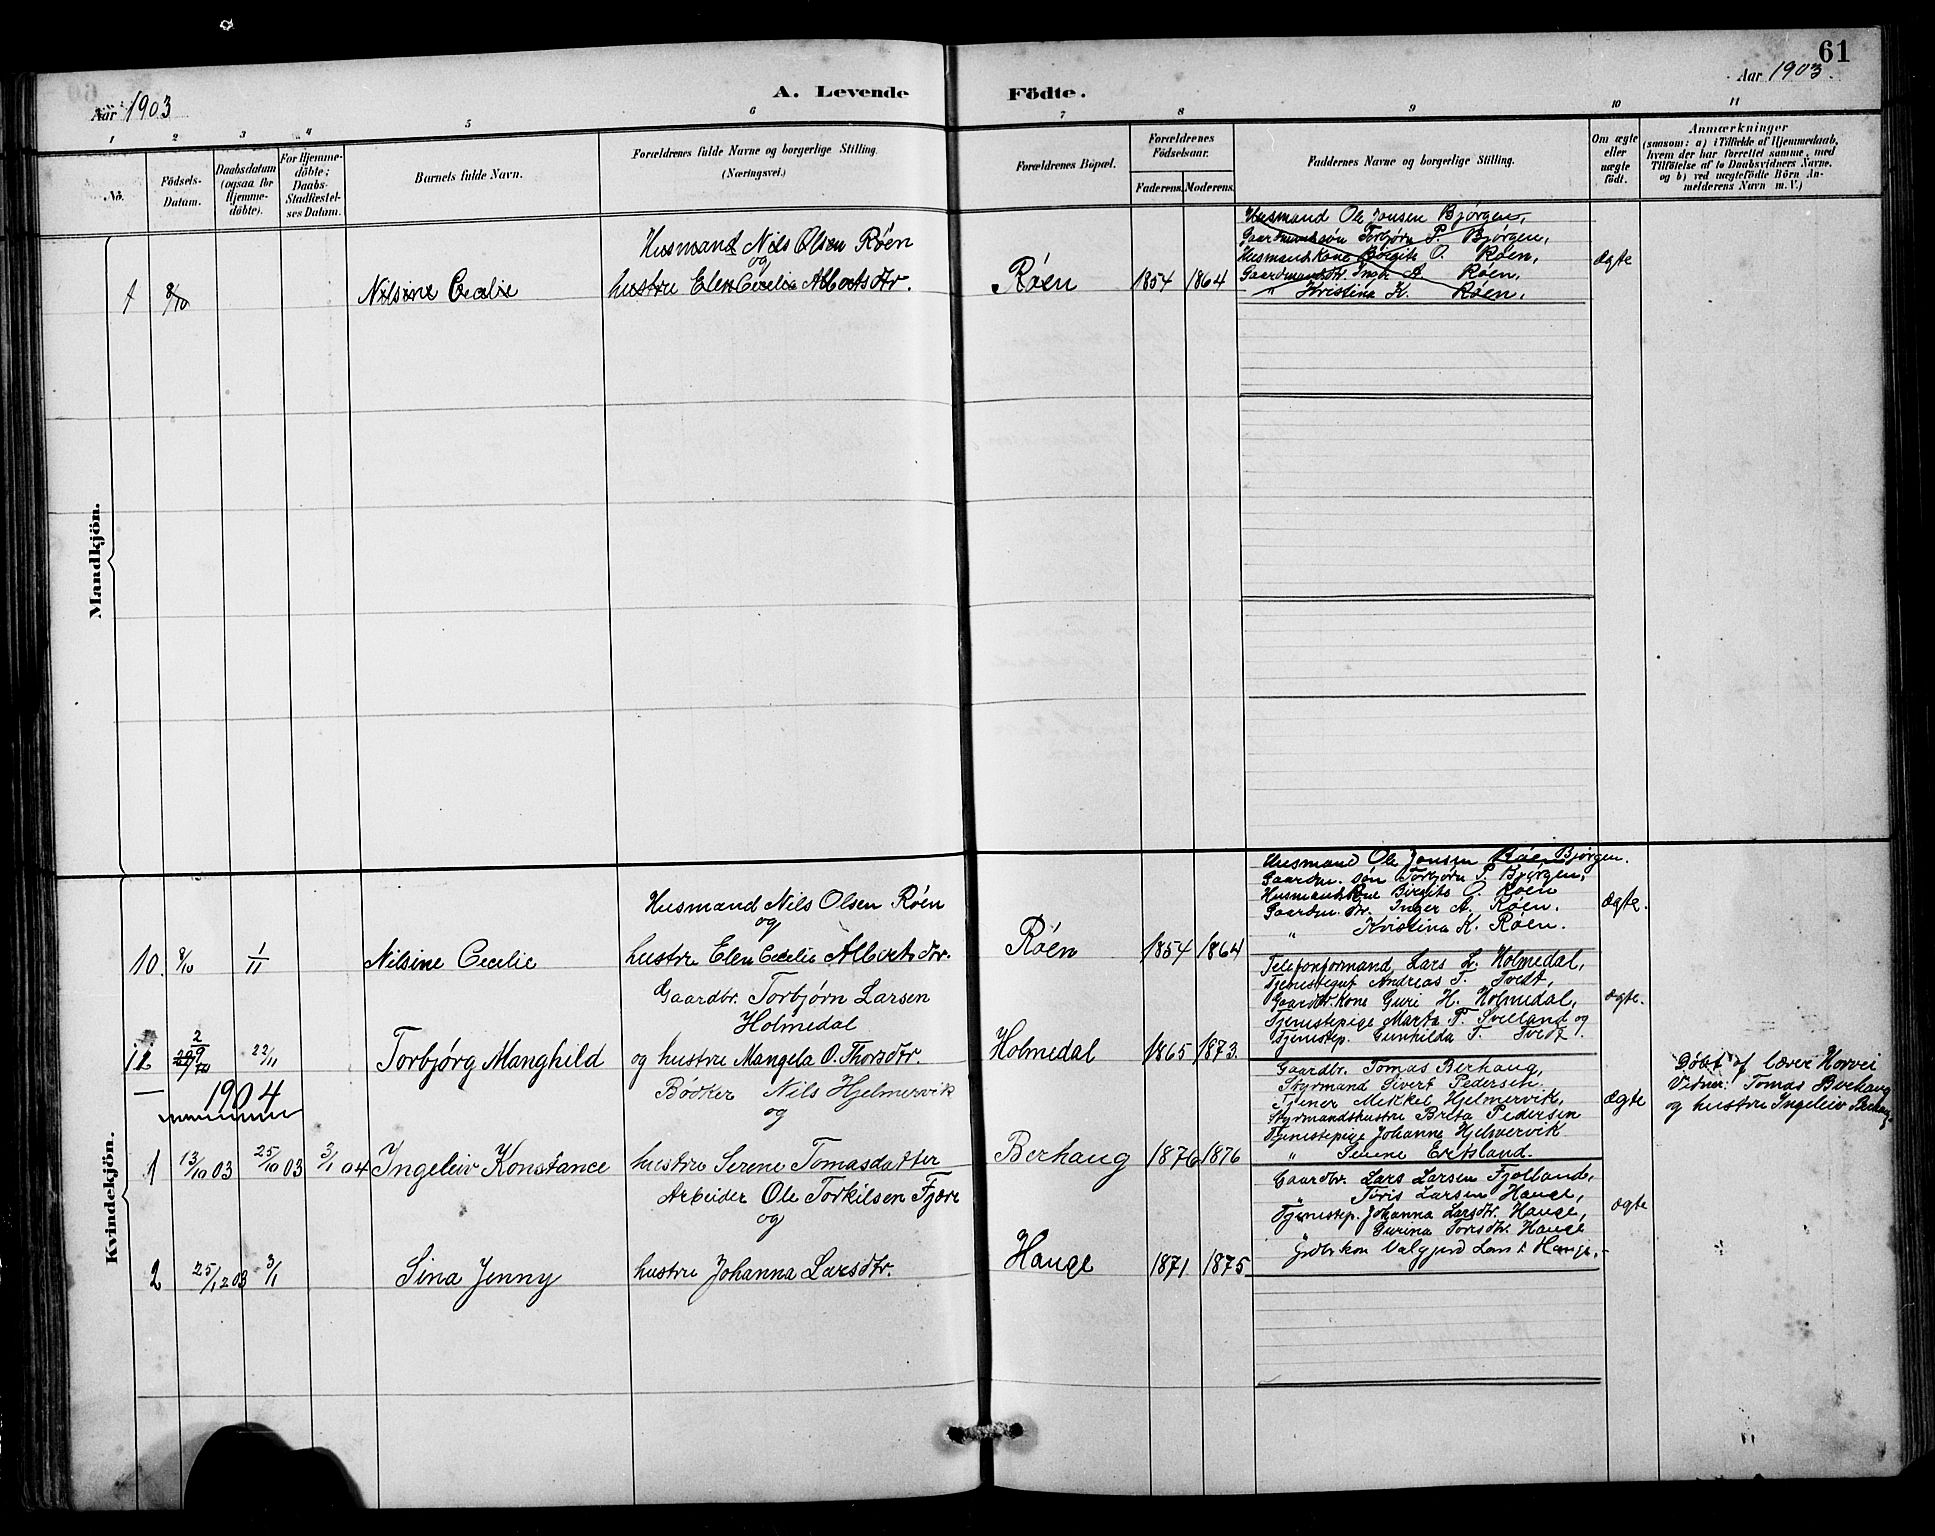 61
Aar 1903
A. Levende Födte.
Aar 1903.
1 2 3 4 5 6 7 8 9 10 11
No.
Födsels-Datum.
Daabsdatum (ogsaa for Hjemme-döbte).
For Hjemme-döbte; Daabs-Stadfæstel-ses Datum.
Barnets fulde Navn.
Forældrenes fulde Navne og borgerlige Stilling.
(Næringsvei.)
Forældrenes Bopæl.
Forældrenes Födselsaar.
Faderens. Moderens.
Faddernes Navne og borgerlige Stilling.
Om ægte eller uægte födt.
Anmærkninger
(saasom: a) i Tilfælde af Hjemmedaab,
hvem der har forrettet samme, med
Tilföielse af to Daabsvidners Navne.
og b) ved uægtefödte Börn An-
melderens Navn m. V.)
Mandkjön.
1 8/10 Nilsine Cecilie
Husmand Nils Olsen Røen
og
hustru Elen Cecilie Albertsdtr.
Røen 1854 1864
Husmand Ole Jonsen Bjørgen,
Gaardmandssøn Torbjørn P. Bjørgen,
Husmandskone Birgite O. Røen,
Gaardmandsdtr. Inger A. Røen,
" Kristina K. Røen.
Ægte
Kvindekjön.
10. 8/10 1/11 Nilsine Cecilie
Husmand Nils Olsen Røen
og
hustru Elen Cecilie Albertsdtr.
Røen 1854 1864
Husmand Ole Jonsen Røen Bjørgen.
Gaardm. søn Torbjørn P. Bjørgen,
Husmandskone Birgite O. Røen
Gaardm. dtr. Inger A. Røen.
" Kristina K. Røen.
Ægte.
22/11 Torbjørg Manghild
Gaardbr. Torbjørn Larsen
Holmedal
og hustru Mangela O. Thorsdtr.
Holmedal 1865 1873.
Telefonformand Lars L. Holmedal,
Tjenestegut Andreas T. Tvedt,
Gaardbr. kone Guri H. Holmedal,
Tjenestepige Marta T. Svelland og
Tjenestep. Gunhilda T. Tvedt.
Ægte.
1904
1 13/10 03 25/10 03 3/1 04 Ingeleiv Konstance
Bødker Nils Hjelmervik
og
hustru Serene Tomasdatter
Berhaug 1876 1876
Gaardbr. Tomas Berhaug,
Styrmand Sivert Pedersen.
Tjener Mikkel Hjelmervik,
Styrmandshustru Brita Pedersen
Tjenestepige Johanna Hjelmervik
" Serene Eritsland.
Ægte
Døbt af lærer Horvei
Vidner: Tomas Berhaug
og hustru Ingeleiv Berhaug
2 25/12 03 3/1 Sina Jenny
Arbeider Ole Torkilsen Fjære
og
hustru Johanna Larsdtr.
Hauge 1871 1875
Gaardbr. Lars Larsen Fjelland,
" Toris Larsen Hauge,
Tjenestep. Johanna Larsdtr. Hauge,
" Gurina Torisdtr. Hauge
Grdbr.kon Valgjerd Lars. Hauge.
Ægte